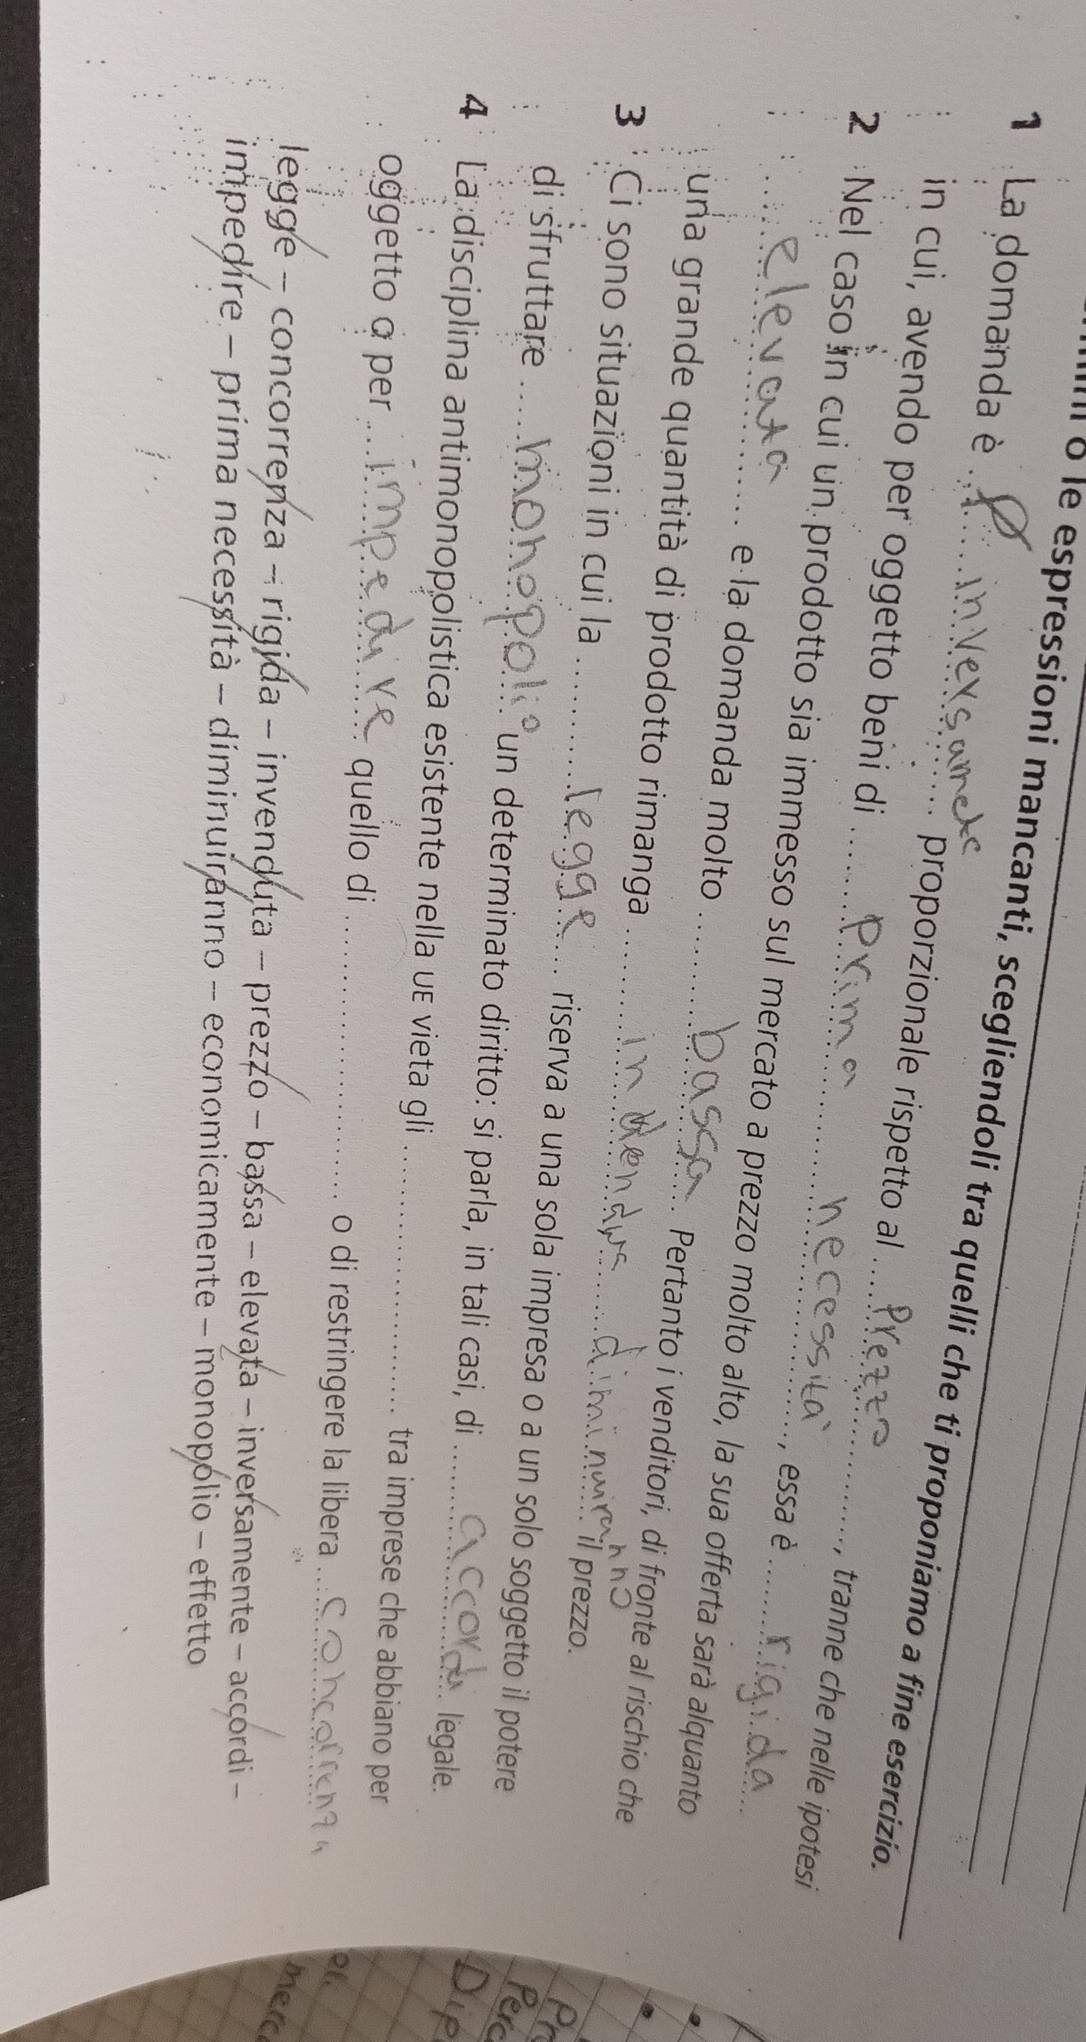 o le espressioni mancanti, scegliendoli tra quelli che ti proponiamo a fine esercizio.
1 La domanda è inversamete proporzionale rispetto al prezzo, tranne che nelle ipotesi
in cui, avendo per oggetto beni di prima necessità, essa è rigida.
2 Nel caso in cui un prodotto sia immesso sul mercato a prezzo molto alto, la sua offerta sarà alquanto
elevata e la domanda molto bassa. Pertanto i venditori, di fronte al rischio che
una grande quantità di prodotto rimanga diminuiranno il prezzo.
3 Ci sono situazioni in cui la legge riserva a una sola impresa o a un solo soggetto il potere
di sfruttare monopolio un determinato diritto: si parla, in tali casi, di accordi legale.
4 La disciplina antimonopolistica esistente nella UE vieta gli ........ tra imprese che abbiano per
oggetto o per impedire quello di ........ o di restringere la libera concorrenza
legge – concorrenza – rigida – invenduta – prezzo – bassa – elevata – inversamente – accordi –
impedire – prima necessità – diminuiranno – economicamente – monopolio – effetto
Pr
Perc
Dip
er.
merc